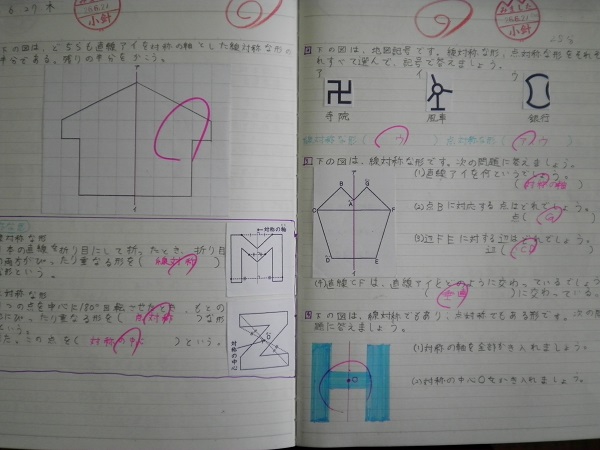 6.29 木
小針
下の図は、どちらも直線アイを対称の軸とした線対称な形の
半分がある。残りの半分をかこう。
対称の軸
線対称な形
1本の直線を折り目にして折ったとき、折り目
の両方がぴったり重なる形を(線対称)
形という。
点対称な形
1つの点を中心に180°回転させたとき、もとの
形にぴったり重なる形を(点対称)な形
という。
また、この点を(対称の中心)という。
対称の中心
小針
下の図は、地図記号です。線対称な形、点対称な形をそれぞ
れすべて選んで、記号で答えましょう。
ア イ ウ
寺院 風車 銀行
線対称な形(ウ) 点対称な形(ア ウ)
下の図は、線対称な形です。次の問題に答えましょう。
(1)直線アイを何というでしょう。
(対称の軸)
(2)点Bに対応する点はどれでしょう。
点(G)
(3)辺FEに対する辺はどれでしょう。
辺
(4)直線CFは、直線アイとどのように交わっているでしょう
(垂直)に交わっている。
下の図は、線対称でもあり、点対称でもある形です。次の問
題に答えましょう。
(1)対称の軸を全部かき入れましょう。
(2)対称の中心Oをかき入れましょう。
O